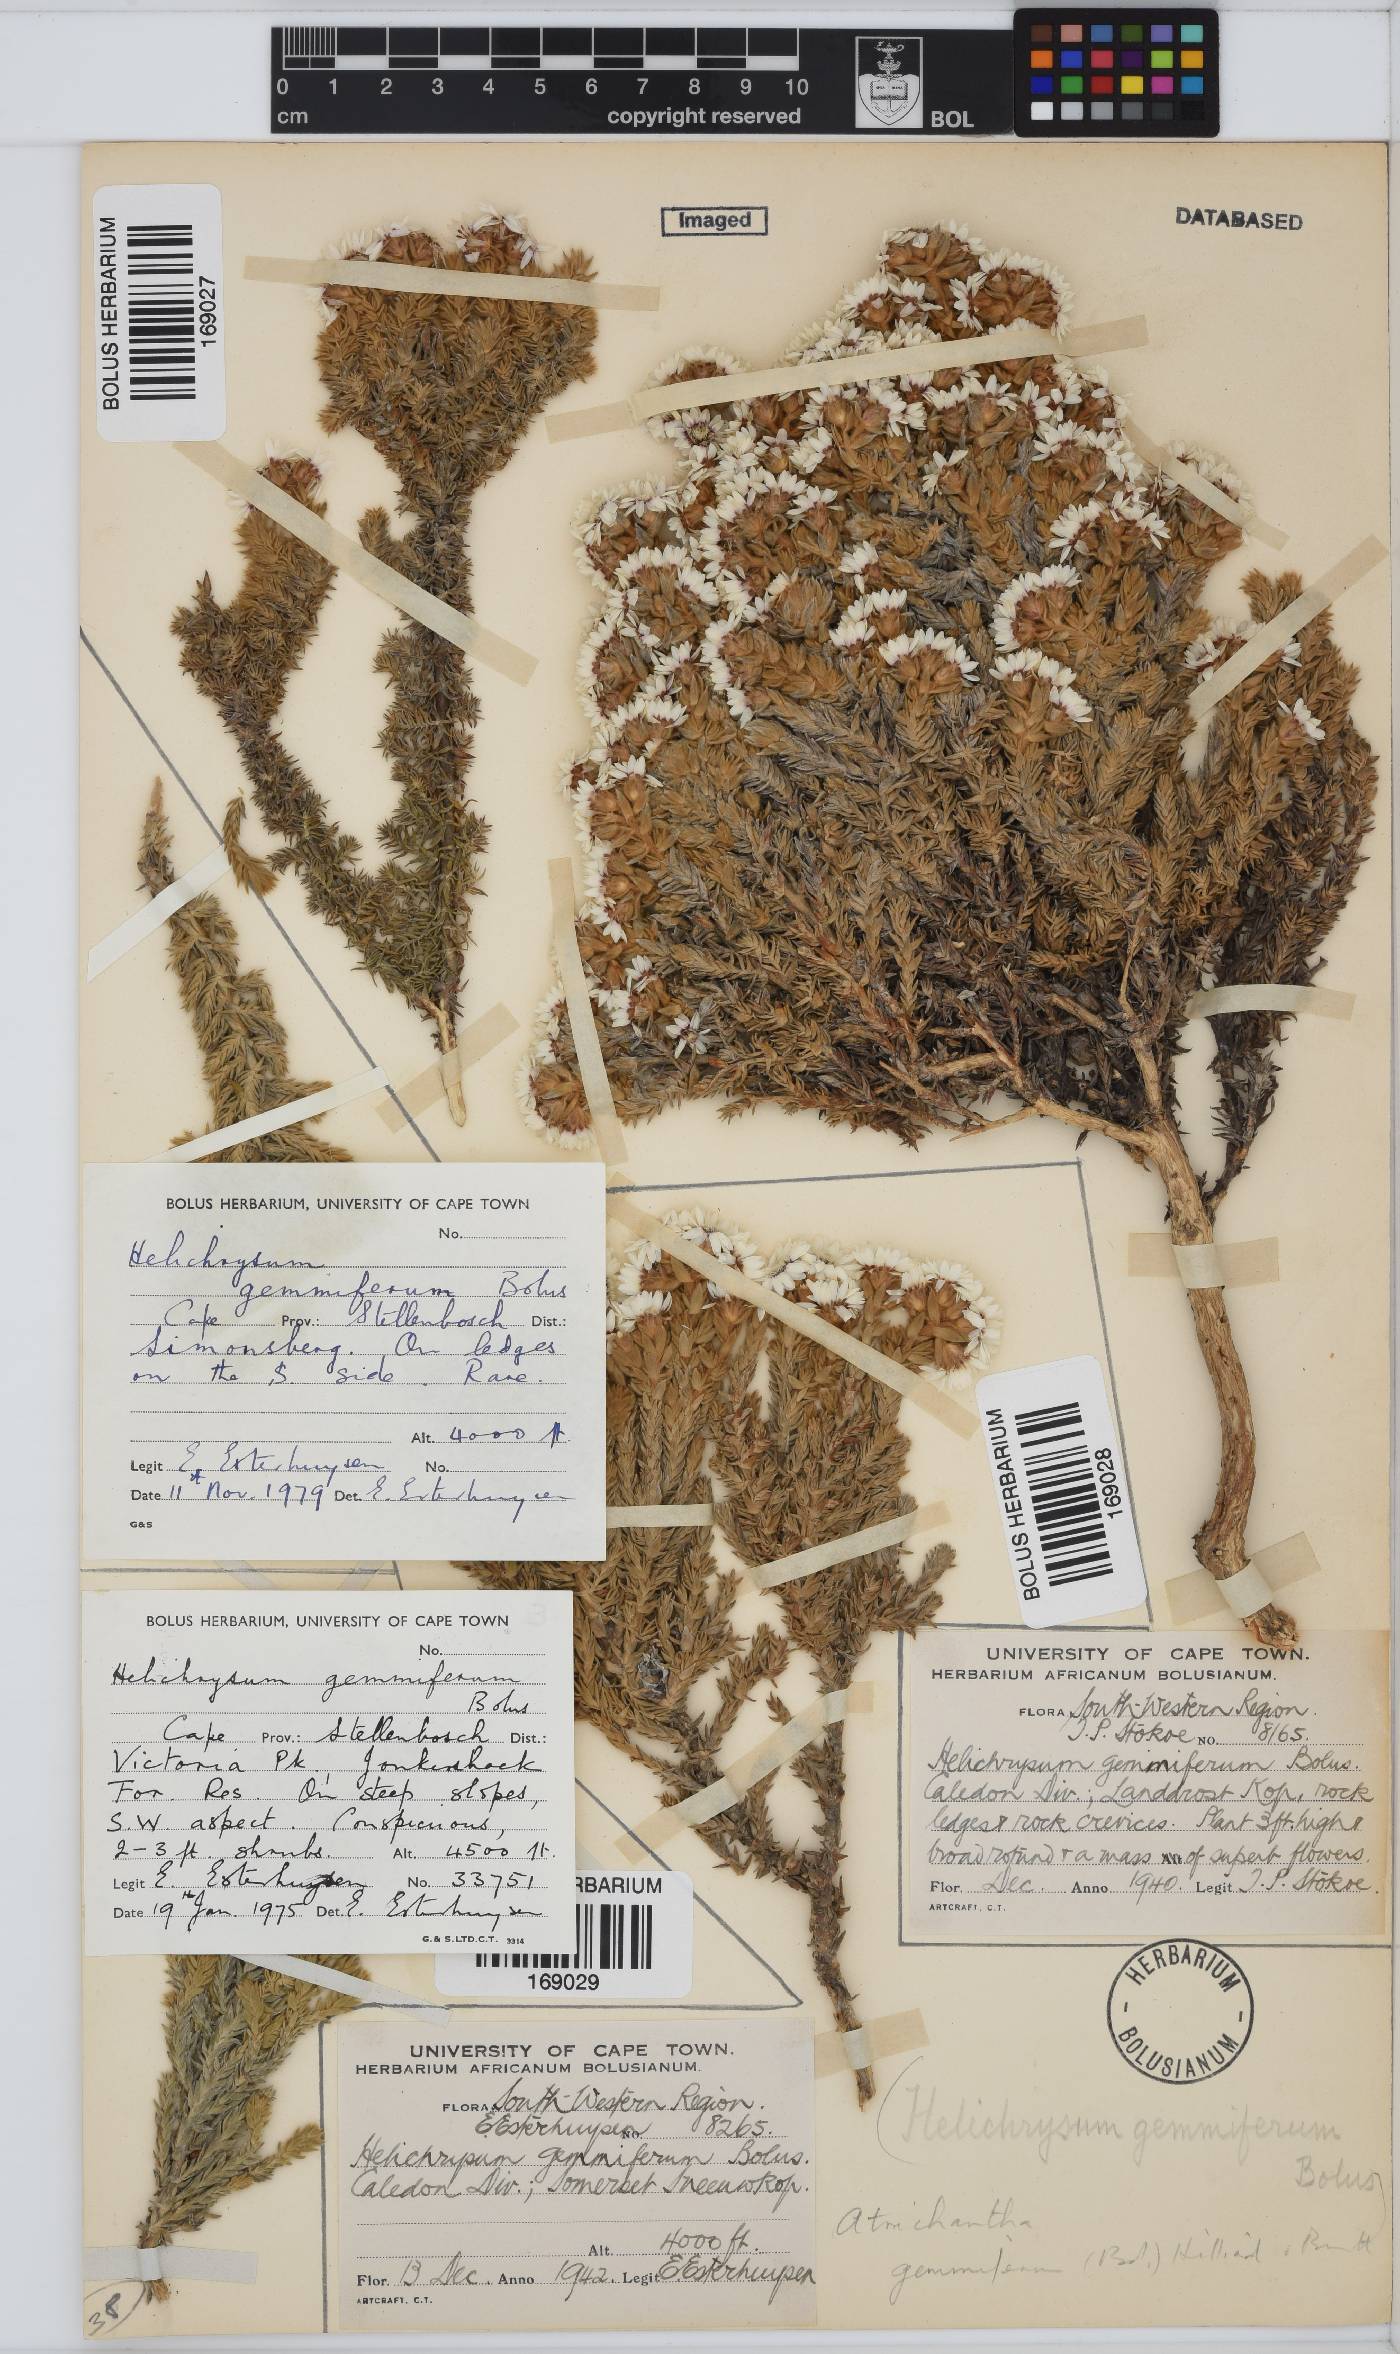 0 1 2 3 4 5 6 7 8 9 10
cm
copyright reserved
BOL
Imaged
DATABASED
BOLUS HERBARIUM
169027
BOLUS HERBARIUM, UNIVERSITY OF CAPE TOWN
No.
Helichrysum
gemmiferum Bolus
Cape Prov.: Stellenbosch Dist.:
Simonsberg. On ledges
on the S. side. Rare.
Alt. 4000 ft.
Legit E. Esterhuysen No.
Date 11th Nov. 1979 Det. E. Esterhuysen
G&S
BOLUS HERBARIUM, UNIVERSITY OF CAPE TOWN
No.
Helichrysum gemmiferum
Bolus
Cape Prov.: Stellenbosch Dist.:
Victoria Pk., Jonkershoek
For. Res. On steep slopes,
S.W aspect. Conspicuous,
2-3 ft. shrubs. Alt. 4500 ft.
Legit E. Esterhuysen No. 33751
Date 19th Jan. 1975 Det. E. Esterhuysen
G. & S. LTD. C.T. 3314
HERBARIUM
169029
BOLUS HERBARIUM
169028
UNIVERSITY OF CAPE TOWN.
HERBARIUM AFRICANUM BOLUSIANUM.
FLORA South-Western Region.
T.P. Stokoe No. 8165.
Helichrysum gemmiferum Bolus.
Caledon Div.; Landdrost Kop, rock
ledges & rock crevices. Plant 3ft. high &
broad rotund & a mass Alt. of superb flowers.
Flor. Dec. Anno 1940. Legit T.P. Stokoe.
ARTCRAFT, C.T.
HERBARIUM
BOLUSIANUM
UNIVERSITY OF CAPE TOWN.
HERBARIUM AFRICANUM BOLUSIANUM.
FLORA South-Western Region.
E Esterhuysen No. 8265.
Helichrysum gemmiferum Bolus.
Caledon Div.; Somerset Sneeuwkop.
Alt. 4000 ft.
Flor. 13 Dec. Anno 1942. Legit E Esterhuysen
ARTCRAFT, C.T.
(Helichrysum gemmiferum
Bolus)
Atrichantha
gemmifera (Bol.) Hilliard & Burtt
38